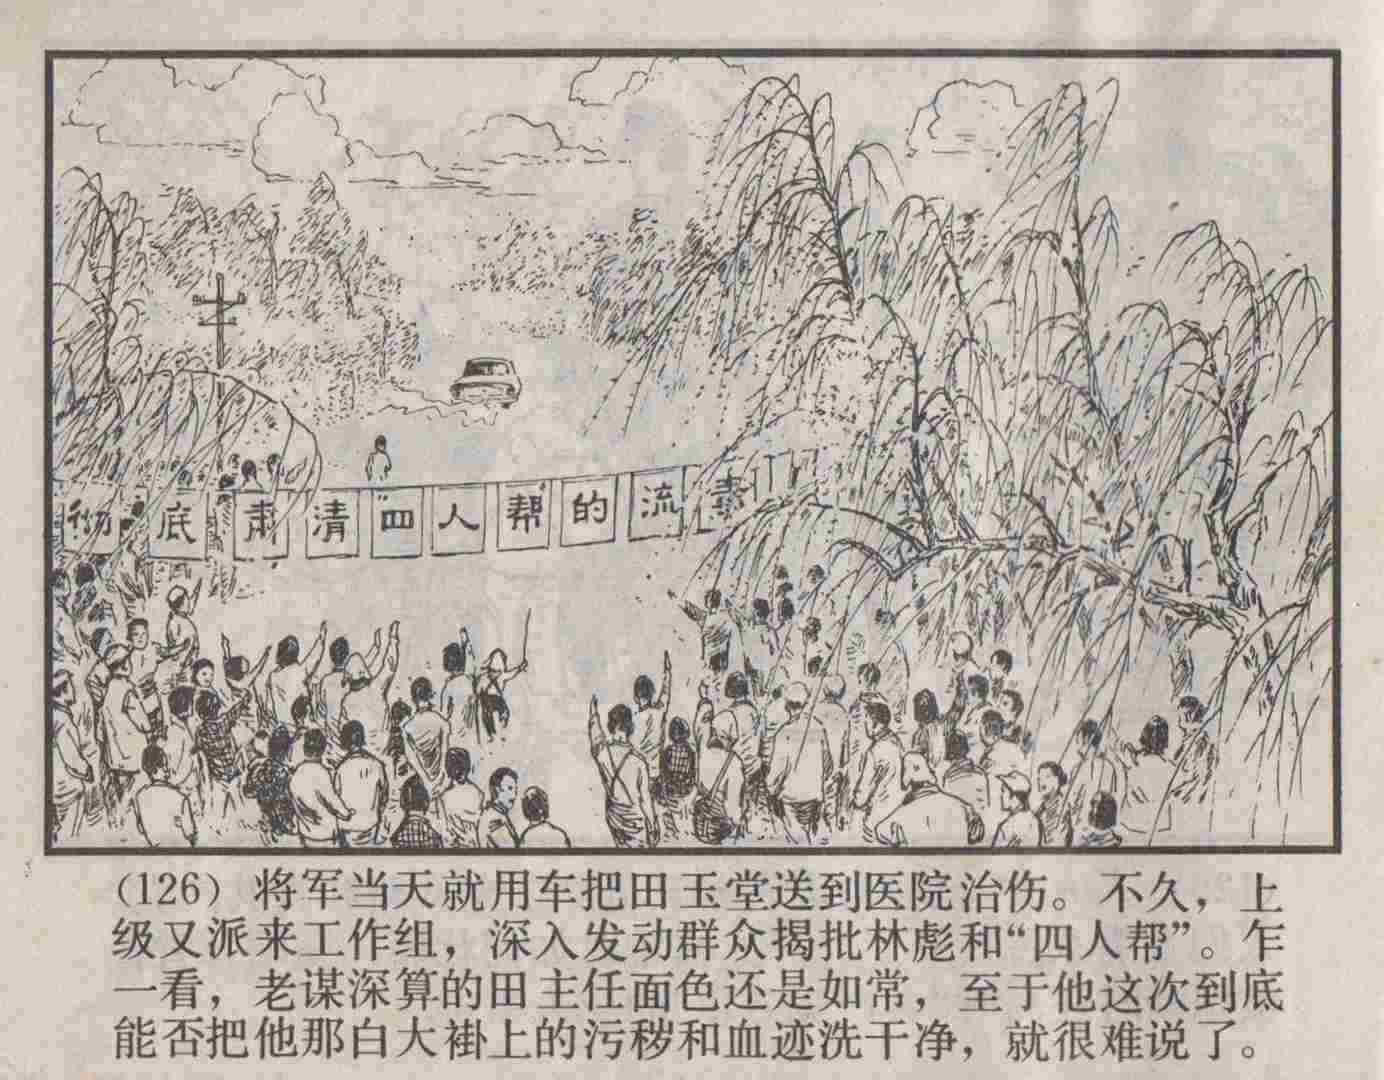 彻底肃清四人帮的流毒
(126) 将军当天就用车把田玉堂送到医院治伤。不久，上
级又派来工作组，深入发动群众揭批林彪和“四人帮”。乍
一看，老谋深算的田主任面色还是如常，至于他这次到底
能否把他那白大褂上的污秽和血迹洗干净，就很难说了。